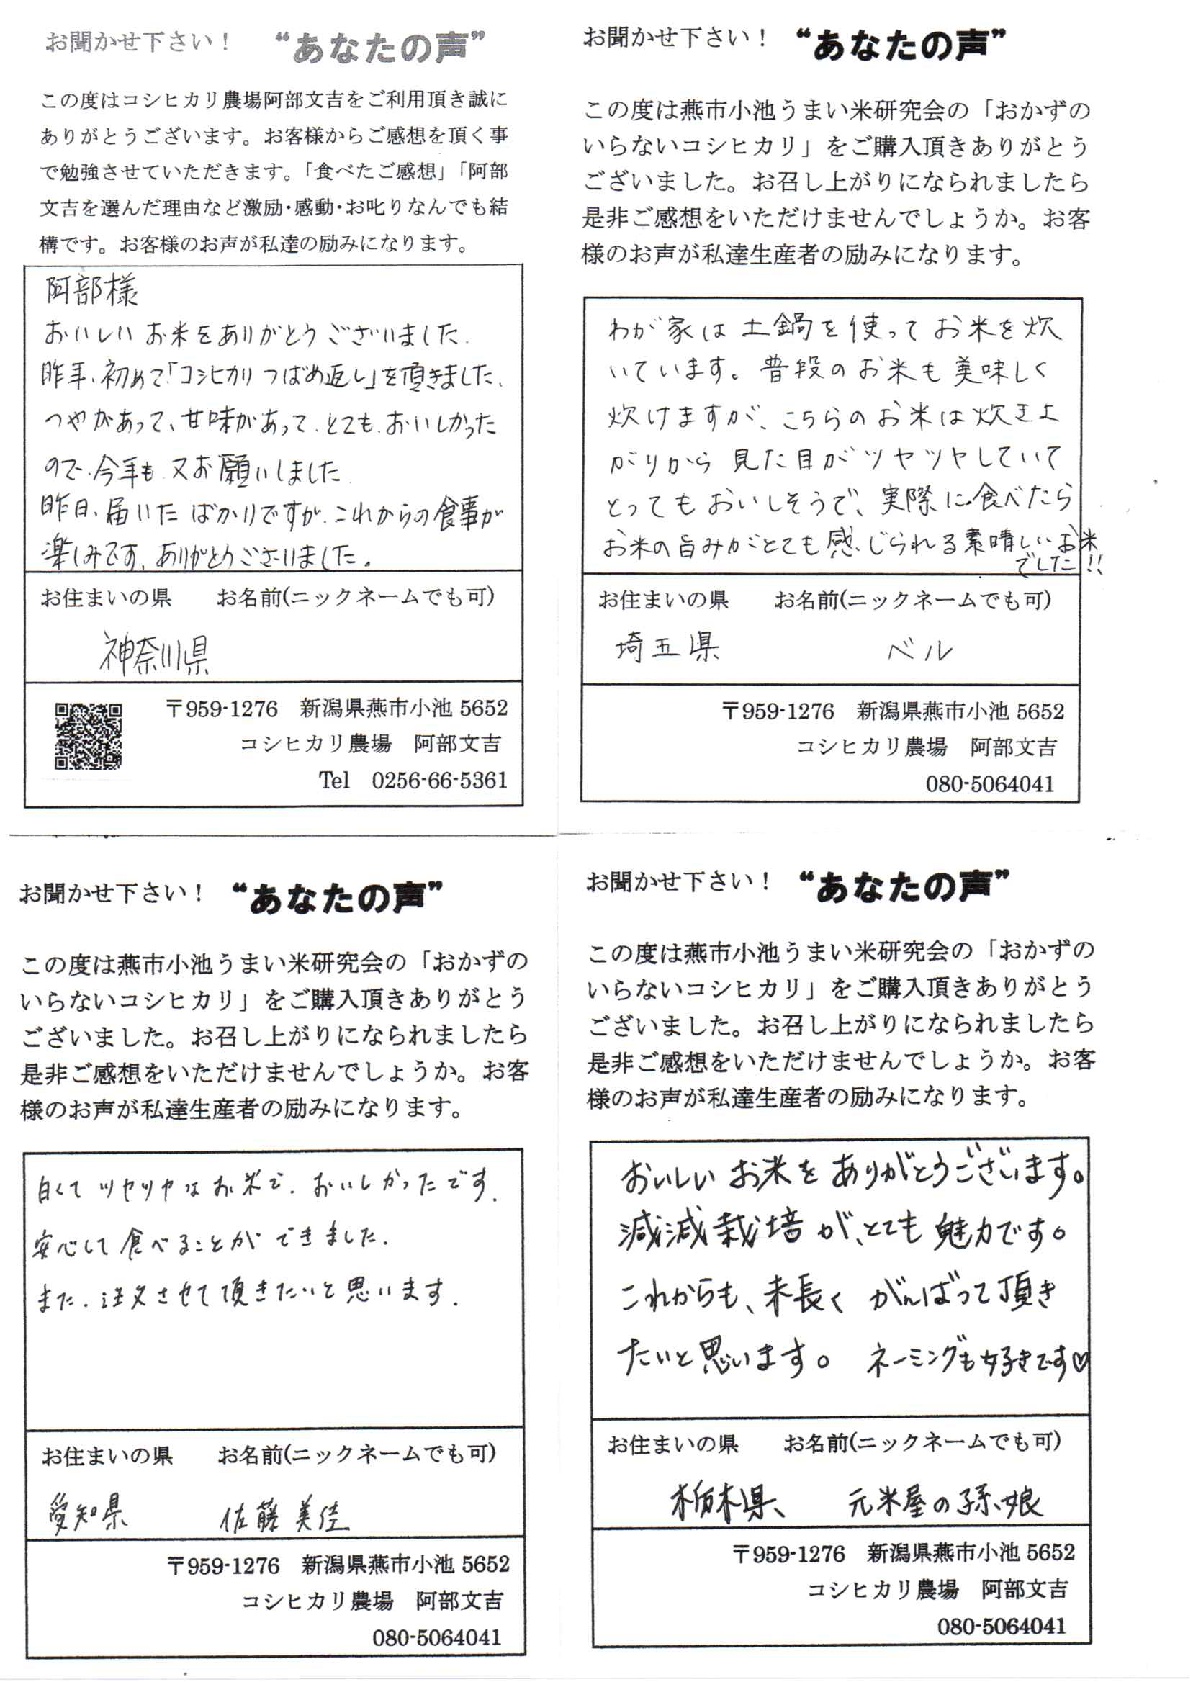 お聞かせ下さい！ “あなたの声”
この度はコシヒカリ農場阿部文吉をご利用頂き誠に
ありがとうございます。お客様からご感想を頂く事
で勉強させていただきます。「食べたご感想」「阿部
文吉を選んだ理由など激励・感動・お叱りなんでも結
構です。お客様のお声が私達の励みになります。
阿部様
おいしいお米をありがとうございました.
昨年、初めて「コシヒカリつばめ返し」を頂きました、
つやがあって、甘味があって、とても、おいしかった
ので、今年も、又お願いしました
昨日、届いたばかりですが、これからの食事が
楽しみです、ありがとうございました。
お住まいの県 お名前(ニックネームでも可)
神奈川県
〒959-1276 新潟県燕市小池 5652
コシヒカリ農場 阿部文吉
Tel 0256-66-5361
お聞かせ下さい！ “あなたの声”
この度は燕市小池うまい米研究会の「おかずの
いらないコシヒカリ」をご購入頂きありがとう
ございました。お召し上がりになられましたら
是非ご感想をいただけませんでしょうか。お客
様のお声が私達生産者の励みになります。
わが家は土鍋を使ってお米を炊
いています。普段のお米も美味しく
炊けますが、こちらのお米は炊き上
がりから見た目がツヤツヤしていて
とってもおいしそうで、実際に食べたら
お米の旨みがとても感じられる素晴しいお米
でした!!
お住まいの県 お名前(ニックネームでも可)
埼玉県 ベル
〒959-1276 新潟県燕市小池 5652
コシヒカリ農場 阿部文吉
080-5064041
お聞かせ下さい！ “あなたの声”
この度は燕市小池うまい米研究会の「おかずの
いらないコシヒカリ」をご購入頂きありがとう
ございました。お召し上がりになられましたら
是非ご感想をいただけませんでしょうか。お客
様のお声が私達生産者の励みになります。
白くてツヤツヤなお米で、おいしかったです.
安心して食べることができました.
また、注文させて頂きたいと思います.
お住まいの県 お名前(ニックネームでも可)
愛知県 佐藤美佳
〒959-1276 新潟県燕市小池 5652
コシヒカリ農場 阿部文吉
080-5064041
お聞かせ下さい！ “あなたの声”
この度は燕市小池うまい米研究会の「おかずの
いらないコシヒカリ」をご購入頂きありがとう
ございました。お召し上がりになられましたら
是非ご感想をいただけませんでしょうか。お客
様のお声が私達生産者の励みになります。
おいしいお米をありがとうございます。
減減栽培が、とても魅力です。
これからも、末長くがんばって頂き
たいと思います。 ネーミングも好きです♡
お住まいの県 お名前(ニックネームでも可)
栃木県、 元米屋の孫娘
〒959-1276 新潟県燕市小池 5652
コシヒカリ農場 阿部文吉
080-5064041